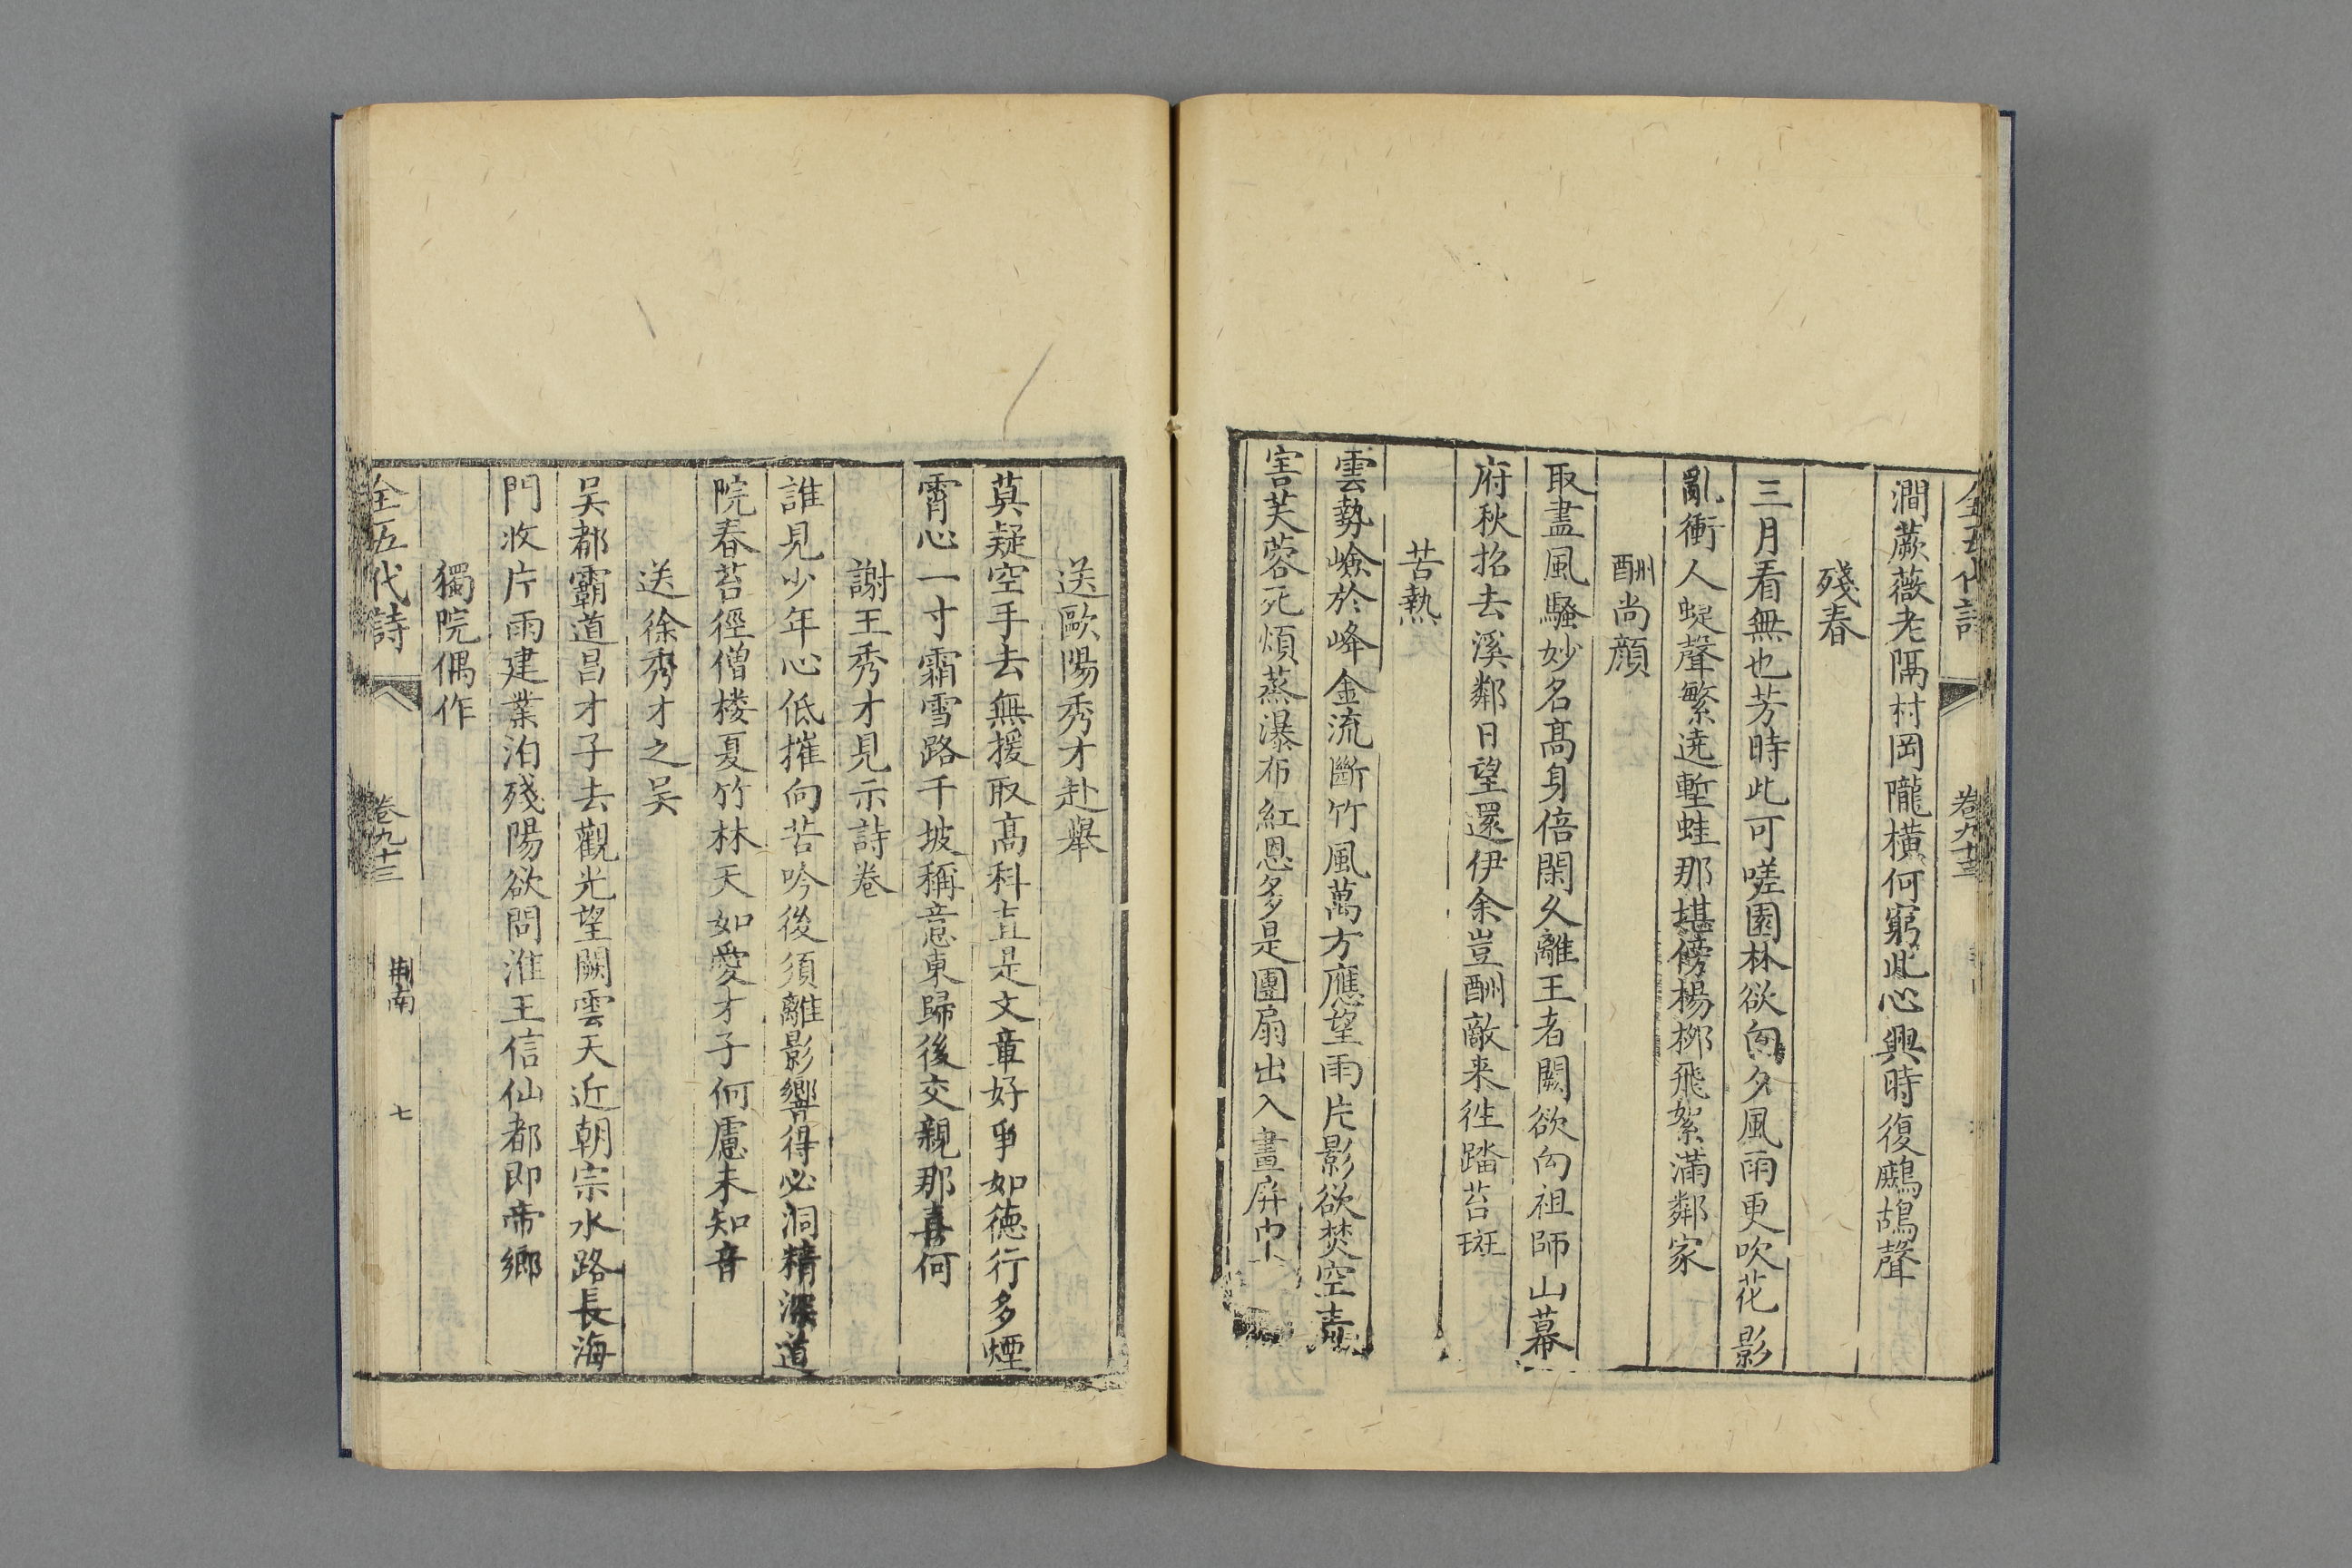 全五代詩 卷九十三
澗蕨薇老隔村岡隴橫何窮此心興時復鷓鴣聲
殘春
三月看無也芳時此可嗟園林欲向夕風雨更吹花影
亂衝人蜨聲繁遶塹蛙那堪傍楊柳飛絮滿鄰家
酬尚顔
取盡風騷妙名髙身倍閑久離王者闕欲向祖師山幕
府秋招去溪鄰日望還伊余豈酬敵来徃踏苔斑
苦熱
雲勢嶮於峰金流斷竹風萬方應望雨片影欲焚空毒
害芙蓉死煩蒸瀑布紅恩多是團扇出入畫屏中
送歐陽秀才赴舉
莫疑空手去無援取髙科直是文章好爭如德行多煙
霄心一寸霜雪路千坡稱意東歸後交親那喜何
謝王秀才見示詩卷
誰見少年心低摧向苦吟後須離影響得必洞精深道
院春苔徑僧樓夏竹林天如愛才子何慮未知音
送徐秀才之吴
吴都霸道昌才子去觀光望闕雲天近朝宗水路長海
門收片雨建業泊殘陽欲問淮王信仙都即帝鄉
獨院偶作
全五代詩 卷九十三 荆南 七